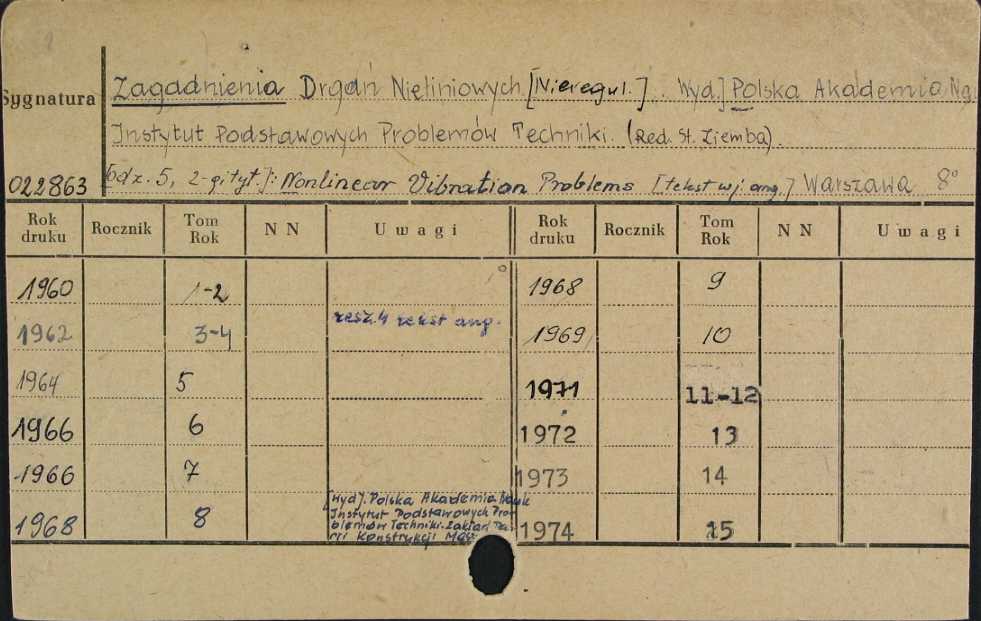 Zagadnienia Drgań Nieliniowych [Nieregul.]. Wyd.] Polska Akademia
Sygnatura
Instytut Podstawowych Problemów Techniki. (Red. St. Ziemba).
022863 [od z. 5, 2-gi tyt.]: Nonlinear Vibration Problems [tekst w j. ang.] Warszawa 8°
Rok druku Rocznik Tom Rok N N Uwagi Rok druku Rocznik Tom Rok N N Uwagi
1960 1-2 1968 9
1962 3-4 tekst ang. 1969 10
1964 5 1971 11-12
1966 6 1972 13
1966 7 1973 14
1968 8 1974 15
[Wyd]. Polska Akademia Nauk
Instytut Podstawowych Pro-
blemów Techniki. Zakład Te-
rii Konstrukcji